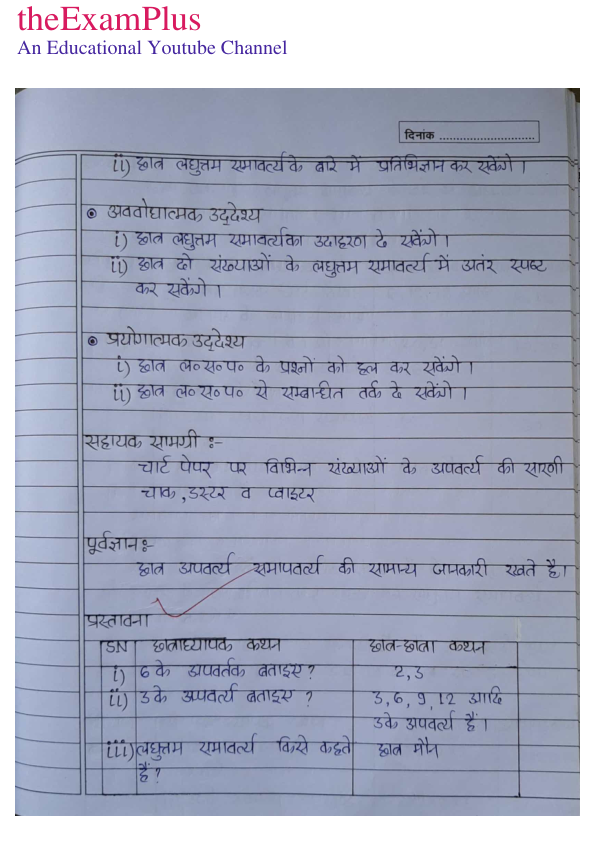 theExamPlus
An Educational Youtube Channel
दिनांक ............................
ii) छात्र लघुत्तम समावर्त्य के बारे में प्रतिभिज्ञान कर सकेंगे ।
अवबोधात्मक उद्देश्य
i) छात्र लघुत्तम समावर्त्य का उदाहरण दे सकेंगे ।
ii) छात्र दो संख्याओं के लघुत्तम समावर्त्य में अतंर स्पष्ट
कर सकेंगे ।
प्रयोगात्मक उद्देश्य
i) छात्र ल० स० प० के प्रश्नों को हल कर सकेंगे ।
ii) छात्र ल० स० प० से सम्बान्धित तर्क दे सकेंगे ।
सहायक सामग्री :-
चार्ट पेपर पर विभिन्न संख्याओं के अपवर्त्य की सारणी
चाक , डस्टर व प्वाइटर
पूर्वज्ञान :-
छात्र अपवर्त्य समापवर्त्य की सामान्य जानकारी रखते है।
प्रस्तावना
SN छात्राध्यापक कथन छात्र-छात्रा कथन
i) 6 के अपवर्तक बताइए ? 2, 3
ii) 3 के अपवर्त्य बताइए ? 3, 6, 9, 12 आदि
3 के अपवर्त्य हैं ।
iii) लघुत्तम समावर्त्य किसे कहते छात्र मौन
हैं ?